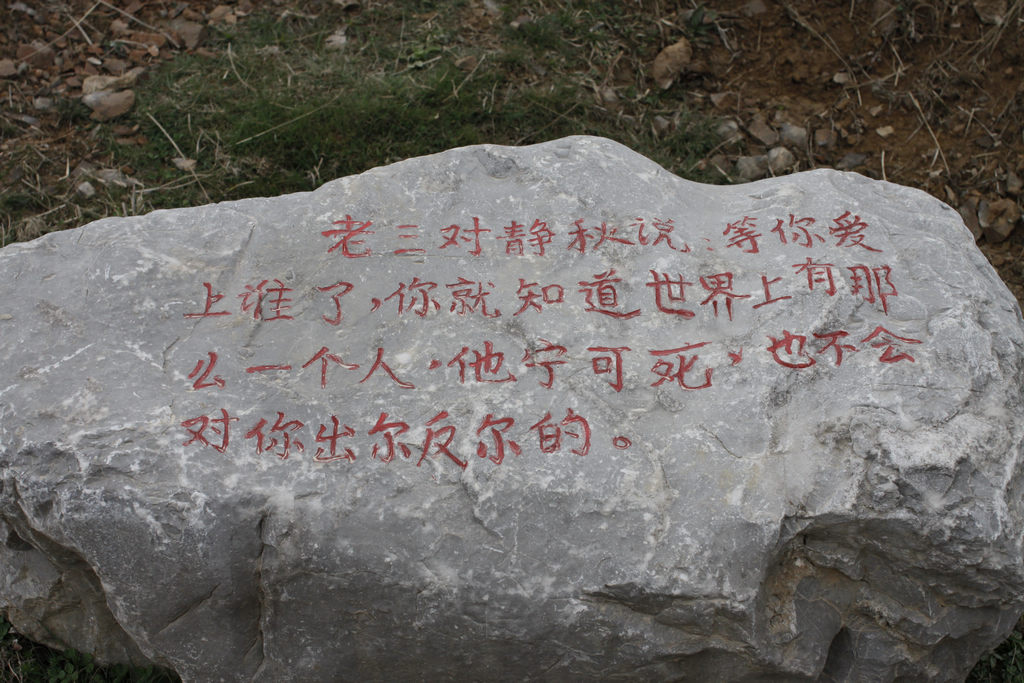 老三对静秋说:等你爱
上谁了,你就知道世界上有那
么一个人,他宁可死,也不会
对你出尔反尔的。